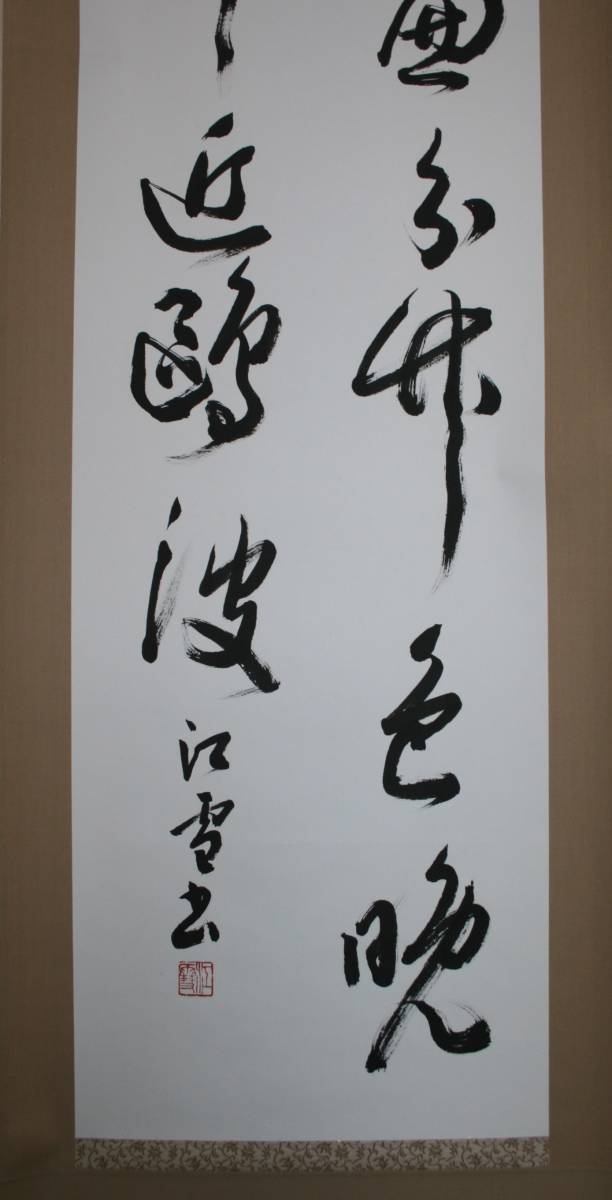 分竹色晩
近鷗波
江雪書